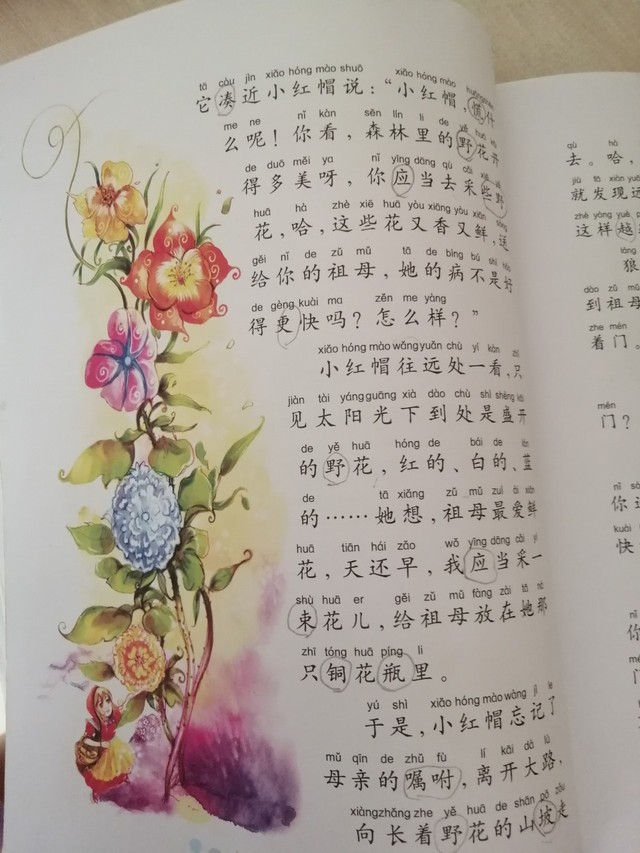 tā còu jìn xiǎo hóng mào shuō xiǎo hóng mào
它凑近小红帽说：“小红帽，慌什
me ne nǐ kàn sēn lín li de yě huā
么呢！你看，森林里的野花开
de duō měi ya nǐ yīng dāng qù cǎi xiē yě
得多美呀，你应当去采些野
huā hà zhè xiē huā yòu xiāng yòu xiān sòng
花，哈，这些花又香又鲜，送
gěi nǐ de zǔ mǔ tā de bìng bú shì hǎo
给你的祖母，她的病不是好
de gèng kuài ma zěn me yàng
得更快吗？怎么样？”
xiǎo hóng mào wǎng yuǎn chù yí kàn zhǐ
小红帽往远处一看，只
jiàn tài yáng guāng xià dào chù shì shèng kāi
见太阳光下到处是盛开
de yě huā hóng de bái de lán
的野花，红的、白的、蓝
de tā xiǎng zǔ mǔ zuì ài xiān
的……她想，祖母最爱鲜
huā tiān hái zǎo wǒ yīng dāng cǎi yí
花，天还早，我应当采一
shù huā er gěi zǔ mǔ fàng zài tā nà
束花儿，给祖母放在她那
zhī tóng huā píng li
只铜花瓶里。
yú shì xiǎo hóng mào wàng jì le
于是，小红帽忘记了
mǔ qīn de zhǔ fù lí kāi dà lù
母亲的嘱咐，离开大路，
xiàng zhǎng zhe yě huā de shān pō zǒu
向长着野花的山坡走
qù hà
去。哈，
jiù fā xiàn yuǎn
就发现远
zhè yàng yuè
这样越
láng
狼
dào zǔ mǔ
到祖母
zhe mén
着门。
mén
门？
nǐ
你
kuài
快
nǐ
你
mén
门